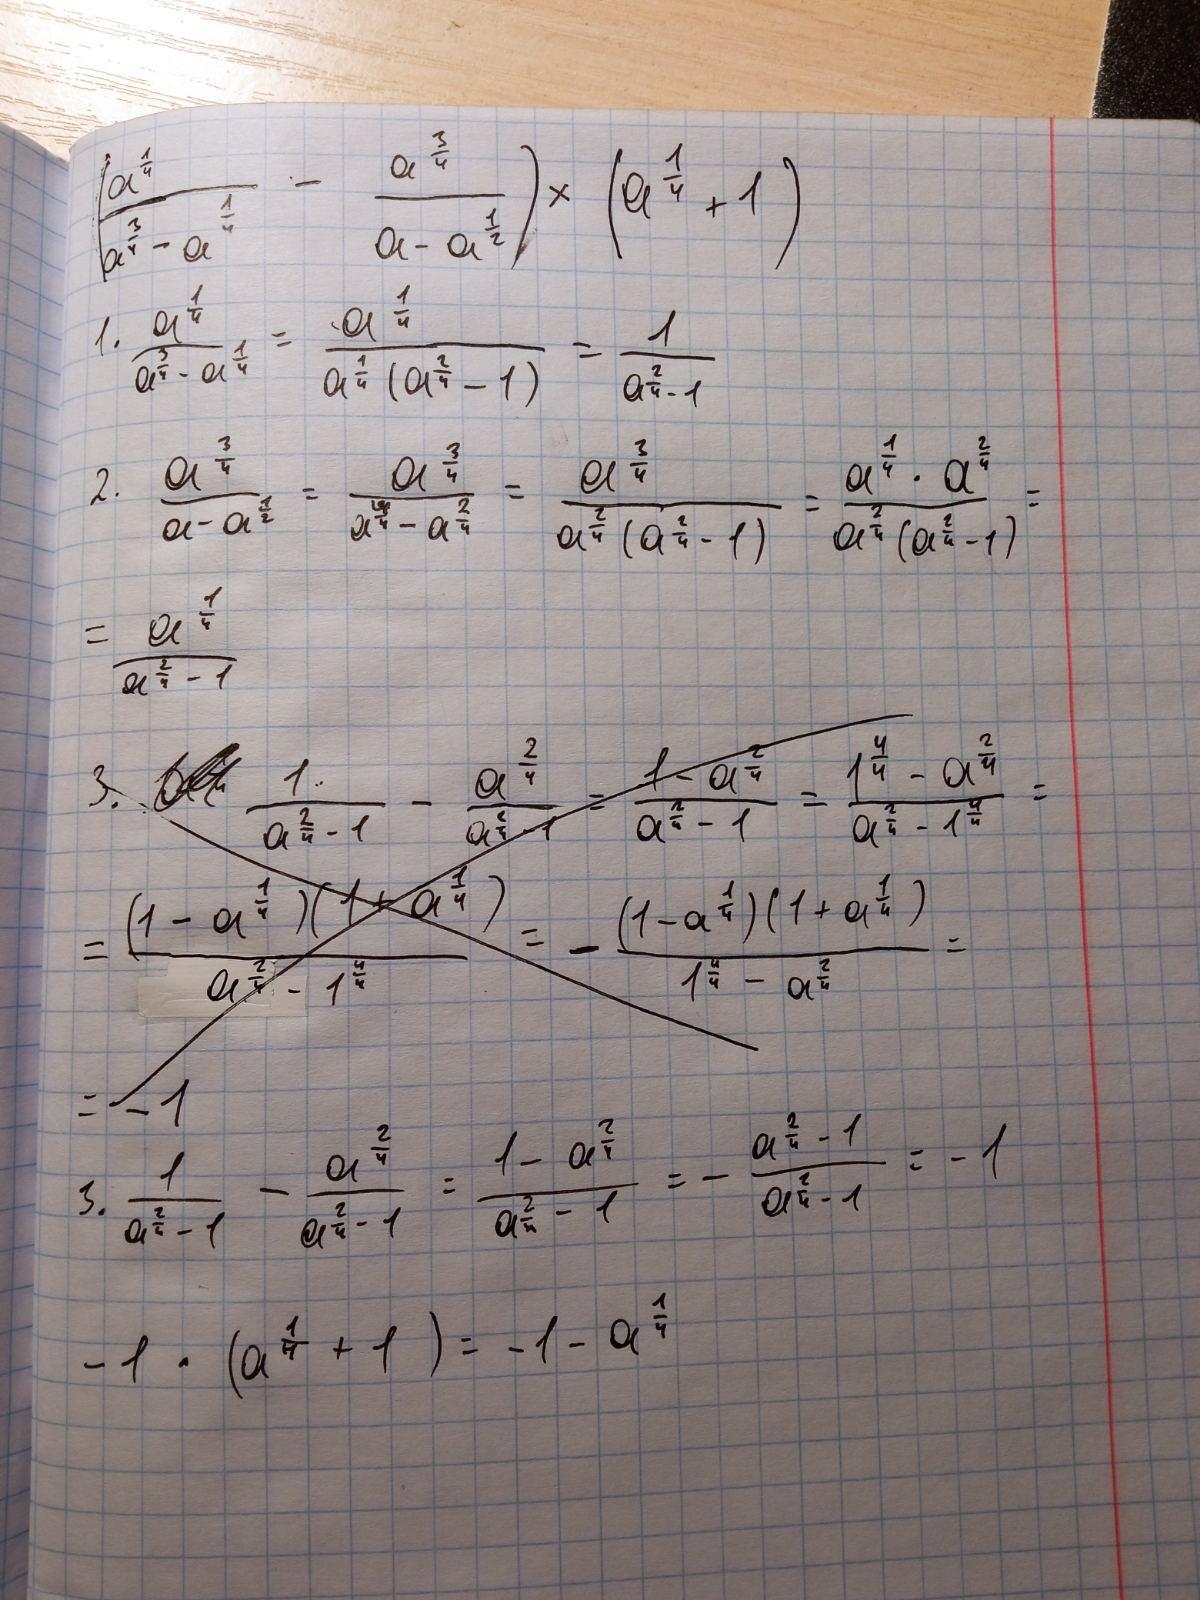 (a^(1/4)/(a^(3/4) - a^(1/4)) - a^(3/4)/(a - a^(1/2))) × (a^(1/4) + 1)
1. a^(1/4)/(a^(3/4) - a^(1/4)) = a^(1/4)/(a^(1/4)(a^(2/4) - 1)) = 1/(a^(2/4) - 1)
2. a^(3/4)/(a - a^(1/2)) = a^(3/4)/(a^(4/4) - a^(2/4)) = a^(3/4)/(a^(2/4)(a^(2/4) - 1)) = (a^(1/4) · a^(2/4))/(a^(2/4)(a^(2/4) - 1)) =
= a^(1/4)/(a^(2/4) - 1)
3. 1/(a^(2/4) - 1) - a^(2/4)/(a^(2/4) - 1) = (1 - a^(2/4))/(a^(2/4) - 1) = (1^(4/4) - a^(2/4))/(a^(2/4) - 1^(4/4)) =
= ((1 - a^(1/4))(1 + a^(1/4)))/(a^(2/4) - 1^(4/4)) = - ((1 - a^(1/4))(1 + a^(1/4)))/(1^(4/4) - a^(2/4)) =
= - 1
3. 1/(a^(2/4) - 1) - a^(2/4)/(a^(2/4) - 1) = (1 - a^(2/4))/(a^(2/4) - 1) = - (a^(2/4) - 1)/(a^(2/4) - 1) = - 1
- 1 · (a^(1/4) + 1) = - 1 - a^(1/4)